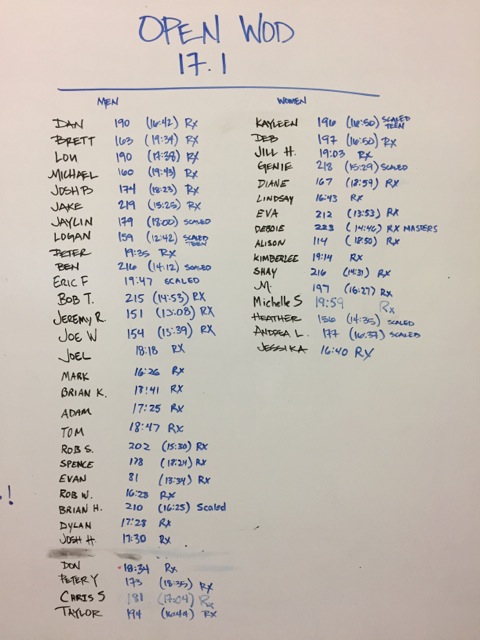 OPEN WOD
17.1
MEN
DAN 190 (16:42) Rx
BRETT 163 (19:34) Rx
LOU 190 (17:38) Rx
MICHAEL 160 (19:43) Rx
JOSH B 174 (18:23) Rx
JAKE 219 (15:25) Rx
JAYLIN 179 (18:00) SCALED
LOGAN 159 (12:42) SCALED TEEN
PETER 19:35 Rx
BEN 216 (14:12) SCALED
ERIC F 19:47 SCALED
BOB T. 215 (14:53) Rx
JEREMY R. 151 (13:08) Rx
JOE W 154 (13:39) Rx
JOEL 18:18 Rx
MARK 16:26 Rx
BRIAN K. 18:41 Rx
ADAM 17:25 Rx
TOM 18:47 Rx
ROB S. 202 (15:30) Rx
SPENCE 178 (18:24) Rx
EVAN 81 (13:34) Rx
ROB W. 16:28 Rx
BRIAN H. 210 (16:25) Scaled
DYLAN 17:28 Rx
JOSH H 17:30 Rx
DON 18:34 Rx
PETER Y 173 (18:35) Rx
CHRIS S 181 (17:04) Rx
TAYLOR 194 (16:44) Rx
WOMEN
KAYLEEN 196 (18:50) SCALED TEEN
DEB 197 (16:50) Rx
JILL H. 19:03 Rx
GENIE 218 (15:29) SCALED
DIANE 167 (18:59) Rx
LINDSAY 16:43 Rx
EVA 212 (13:53) Rx
DEBBIE 223 (14:46) Rx MASTERS
ALISON 114 (18:50) Rx
KIMBERLEE 19:14 Rx
SHAY 216 (14:31) Rx
197 (16:27) Rx
Michelle S 19:59 Rx
HEATHER 156 (14:35) SCALED
ANDREA L. 177 (16:37) SCALED
JESSIKA 16:40 Rx
!